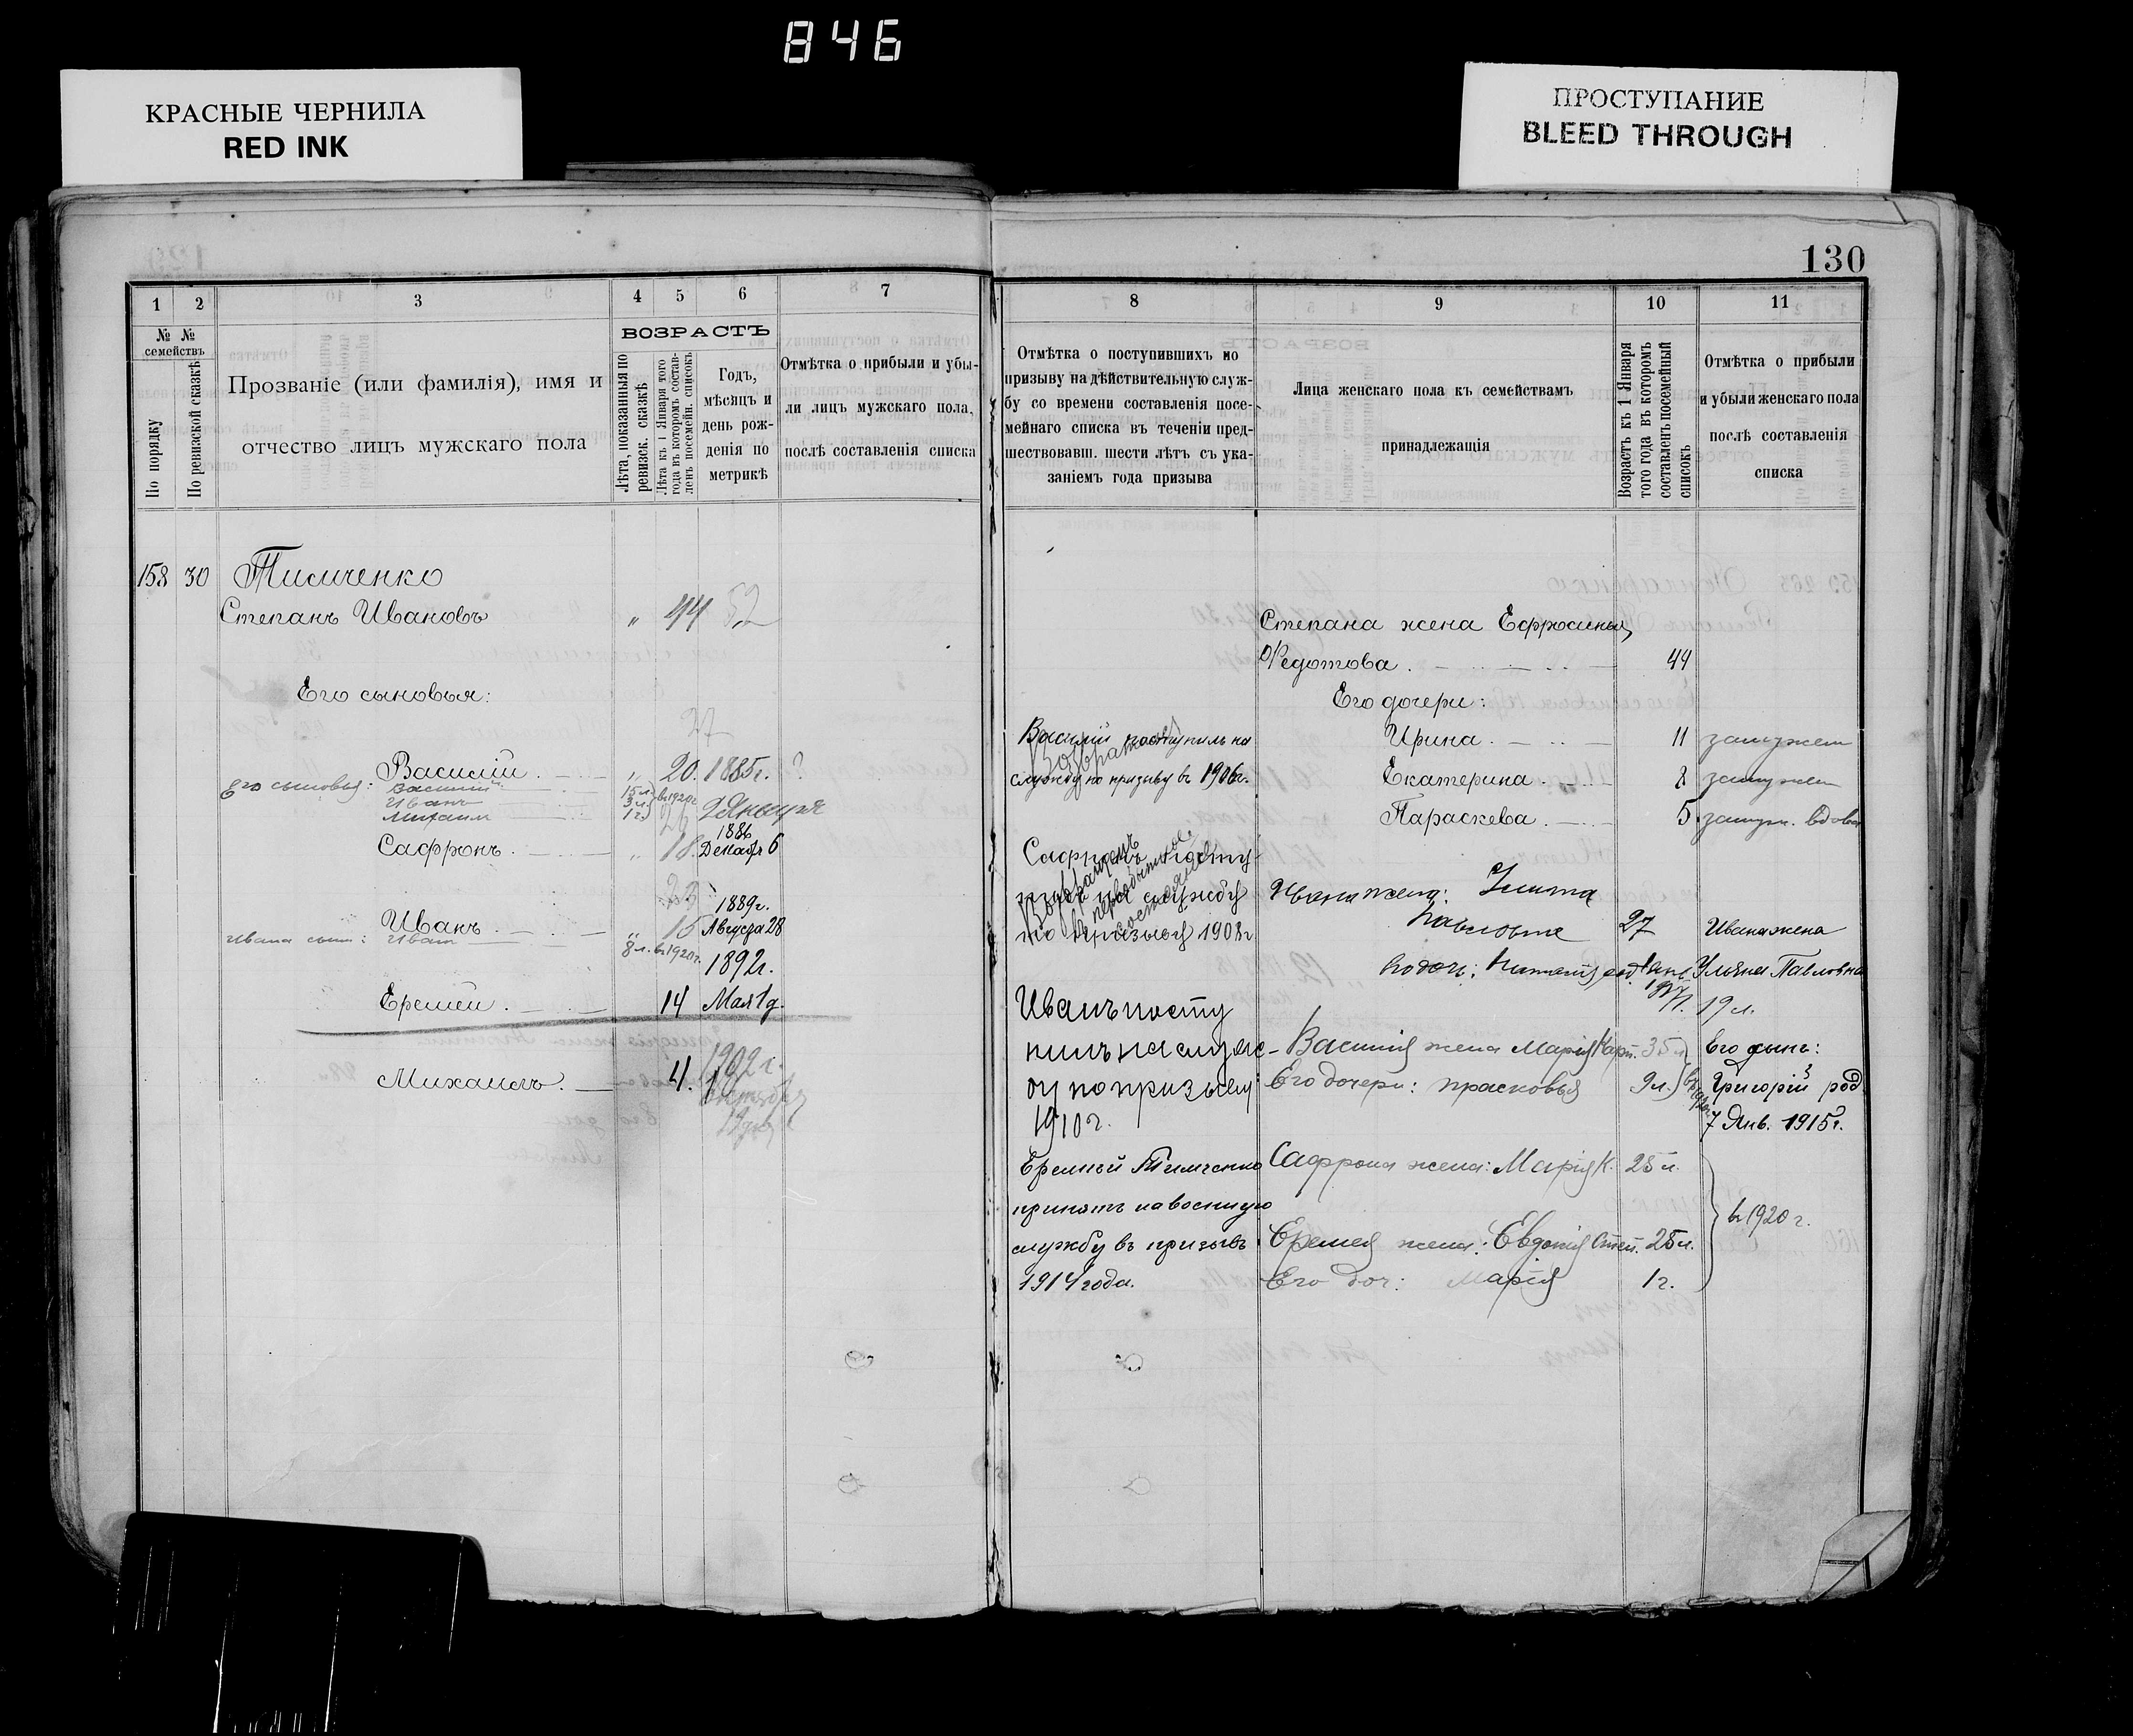 846
КРАСНЫЕ ЧЕРНИЛА
RED INK
ПРОСТУПАНИЕ
BLEED THROUGH
130
1 2 3 4 5 6 7
№ № семействъ
По порядку
По ревизской сказкѣ
Прозваніе (или фамилія), имя и
отчество лицъ мужскаго пола
ВОЗРАСТЪ
Лѣта, показанныя по
ревизск. сказкѣ
Лѣта къ 1 Января того
года въ которомъ состав-
ленъ посемейн. списокъ
Годъ,
мѣсяцъ и
день рож-
денія по
метрикѣ
Отмѣтка о прибыли и убы-
ли лицъ мужскаго пола,
послѣ составленія списка
158 30 Тимченко
Степанъ Ивановъ " 44 52
Его сыновья:
27
Василій " 20. 1885г. ?
Его сыновья: Василій 15 л.
Иванъ 3 л. въ 1920г.
Михаилъ 1 г.
1886
Сафронъ " 18. Декабр 6
1889г.
Иванъ " 15 Августа 28
Ивана сынъ: Иванъ 8 л. въ 1920г.
1892г.
Еремей 14 Мая 1 д.
1902г.
Михаилъ 4.
8 9 10 11
Отмѣтка о поступившихъ по
призыву на дѣйствительную служ-
бу со времени составленія посе-
мейнаго списка въ теченіи пред-
шествовавш. шести лѣтъ съ ука-
заніемъ года призыва
Лица женскаго пола къ семействамъ
принадлежащія
Возрастъ къ 1 Января
того года въ которомъ
составленъ посемейный
списокъ
Отмѣтка о прибыли
и убыли женскаго пола
послѣ составленія
списка
Василій поступилъ на
службу по призыву въ 1906г.
Сафронъ посту-
пилъ на службу
по призыву 1908г
Иванъ посту
пилъ на служ-
бу по призыву
1910г.
Еремей Тимченко
принятъ на военную
службу въ призывъ
1914 года.
Степана жена Ефросинья
Федотова 44
Его дочери:
Ирина 11 замужем
Екатерина 8 замужем
Параскева 5 замуж. вдова
Ивана жена:
Павловна 27 Ивана жена
Ульяна Павловна
19 л.
Василія жена Марія Карп. 35 л.
Его дочери: Прасковья 9 л. въ 1920г.
Его сынъ:
Григорій род
7 Янв. 1915г.
Сафрона жена: Марія К. 25 л.
Еремея жена: Евдокія Степ. 25 л.
Его доч: Марія 1 г.
въ 1920 г.